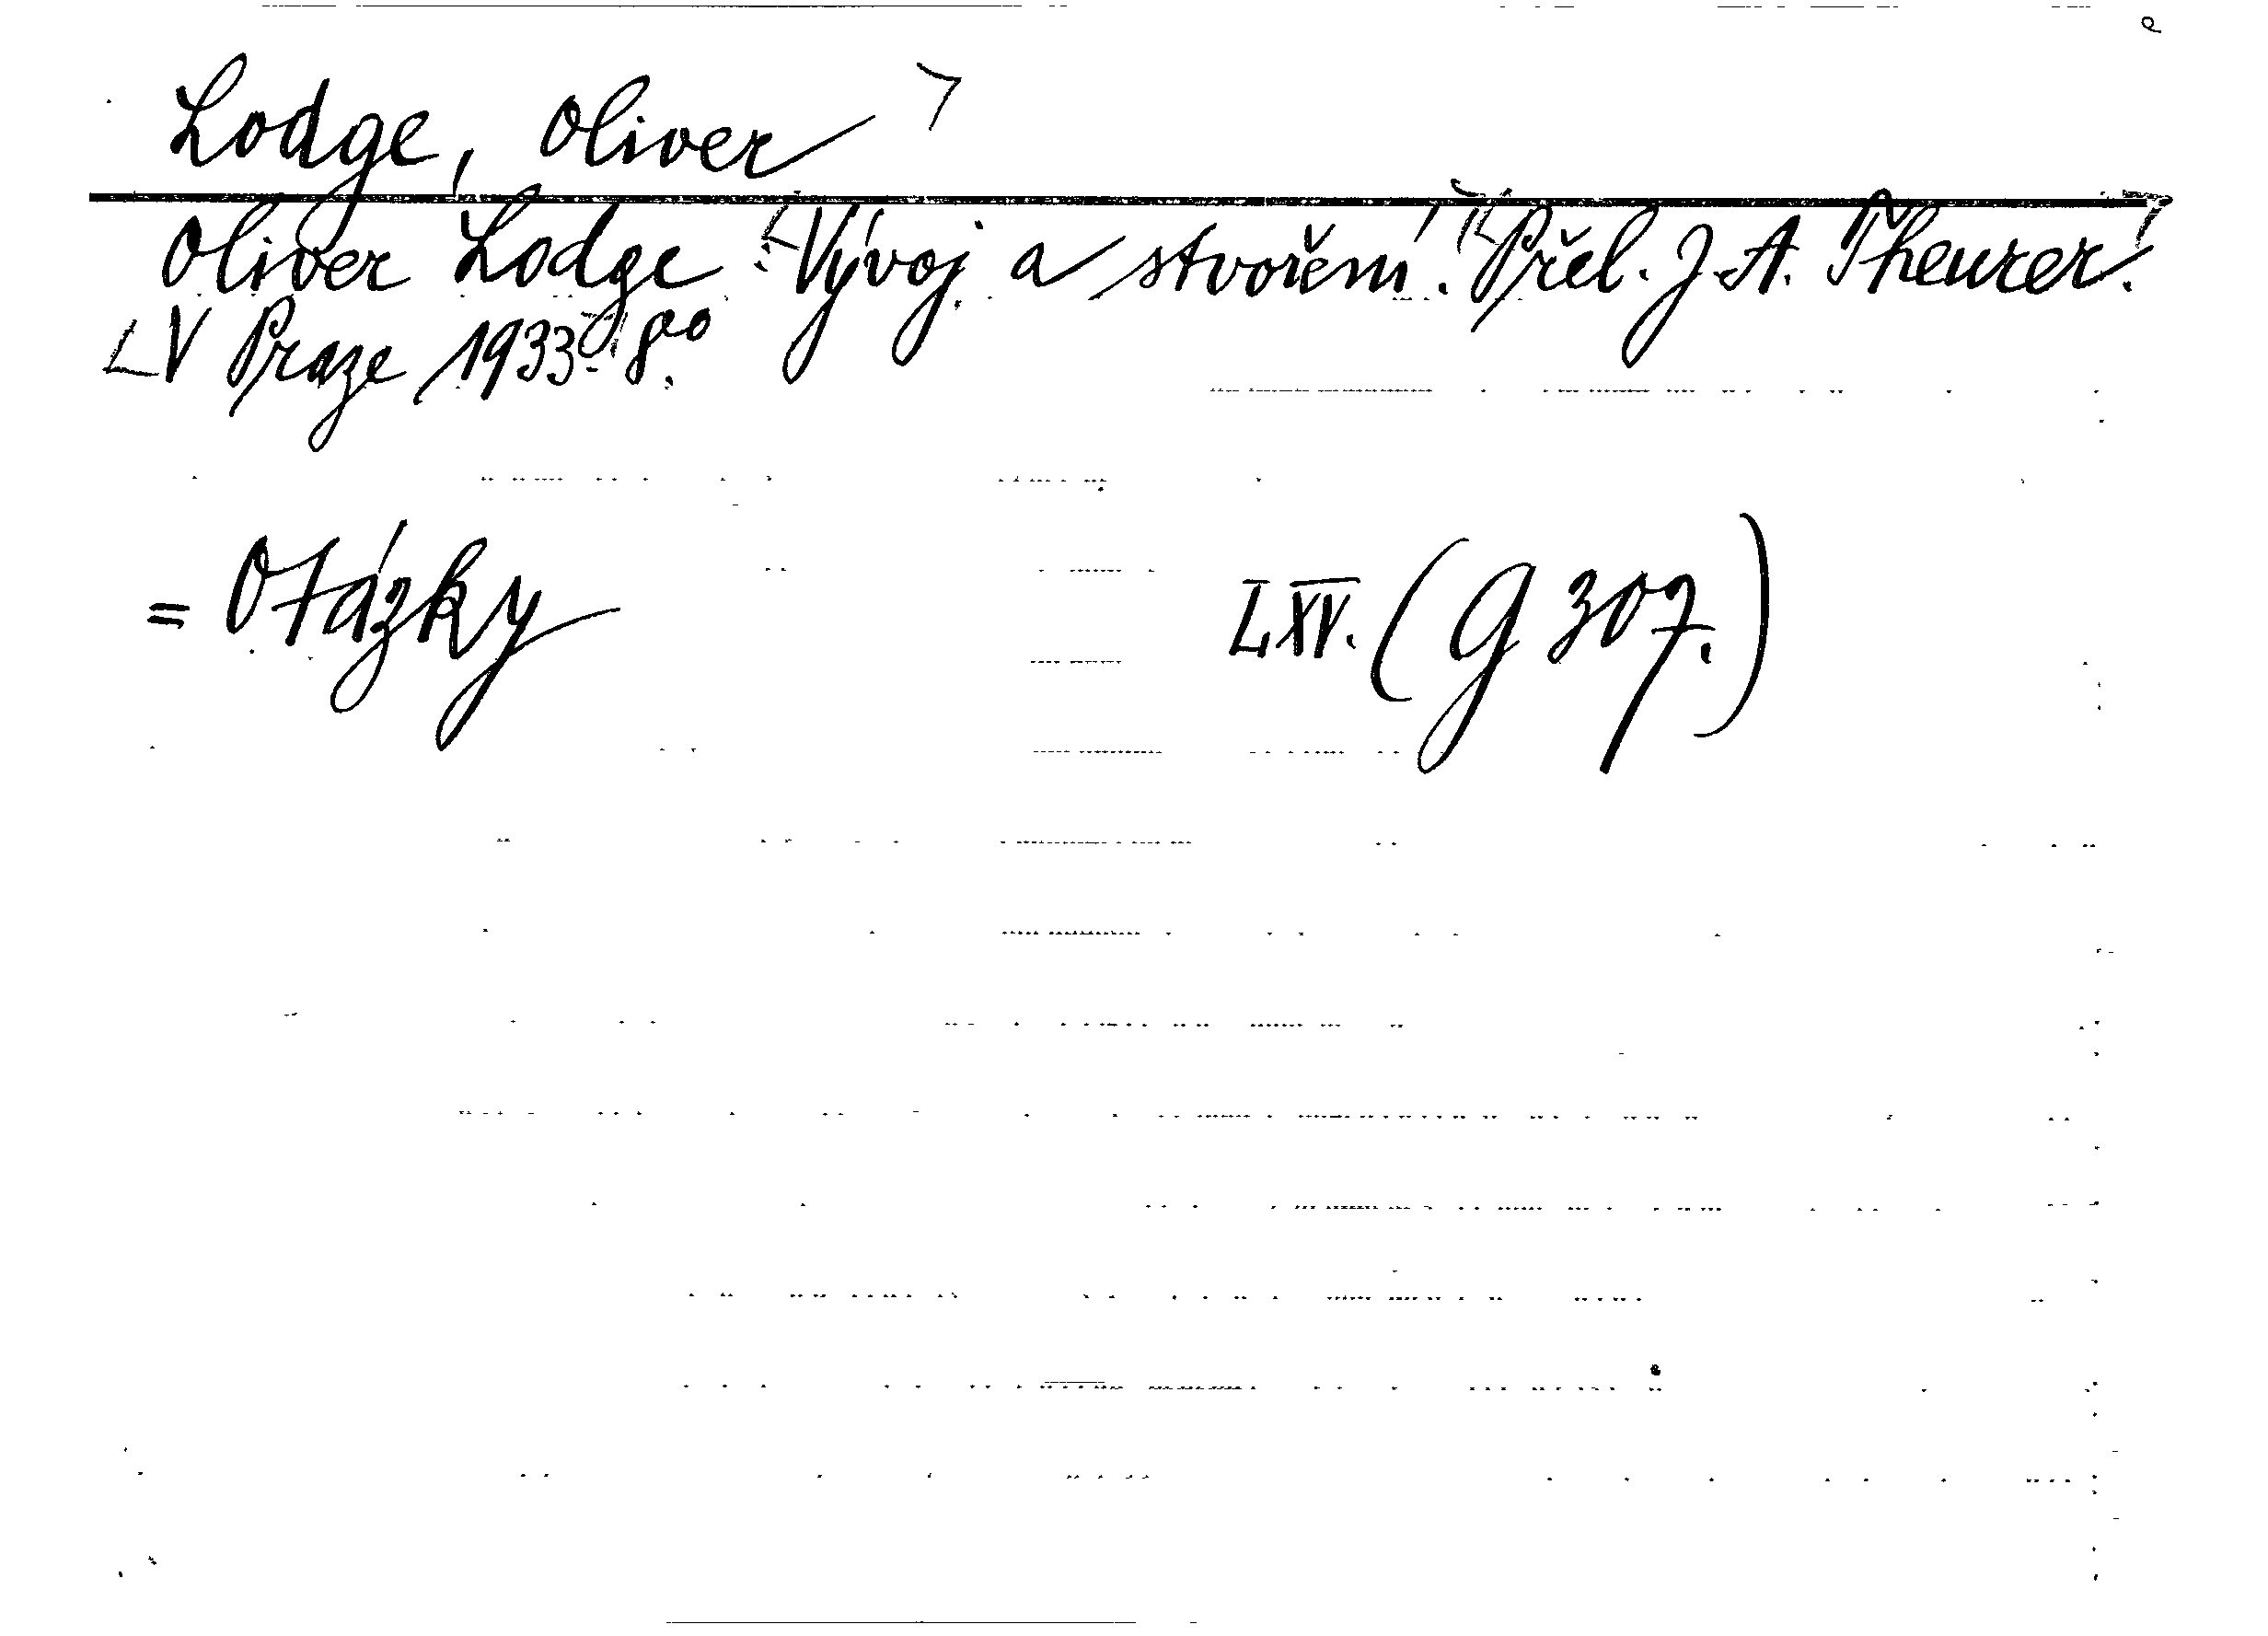 Lodge, Oliver
Oliver Lodge: Vývoj a stvoření. Přel. J. A. Theurer.
V Praze 1933. 8°.
= Otázky LXV. (G 307.)